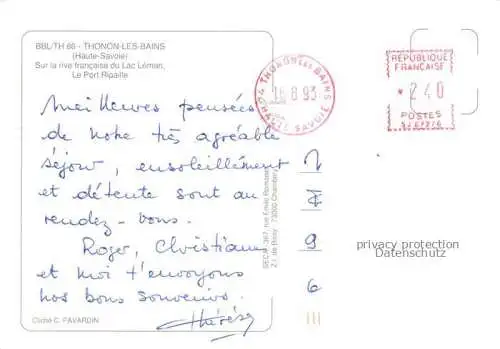 BBL/TH 66 - THONON-LES-BAINS
(Haute-Savoie)
Sur la rive française du Lac Léman,
Le Port Ripaille
Meilleures pensées
de notre très agréable
séjour, ensoleillement
et détente sont au
rendez-vous.
Roger, Christiane
et moi t'envoyons
nos bons souvenirs.
Thérèse
Cliché C. FAVARDIN
THONON LES BAINS
16 8 93
HAUTE SAVOIE
RÉPUBLIQUE
FRANÇAISE
* 240
POSTES
privacy protection
Datenschutz